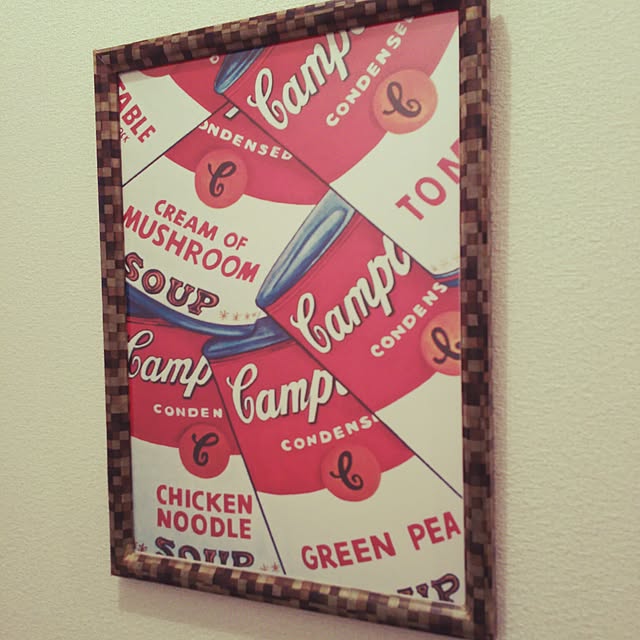 Camp
CONDENSE
C
TOM
TABLE
NDENSED
C
CREAM OF
MUSHROOM
SOUP
Campb
CONDENS
C
Camp
CONDEN
C
CHICKEN
NOODLE
SOUP
Campb
CONDENS
C
GREEN PEA
UP